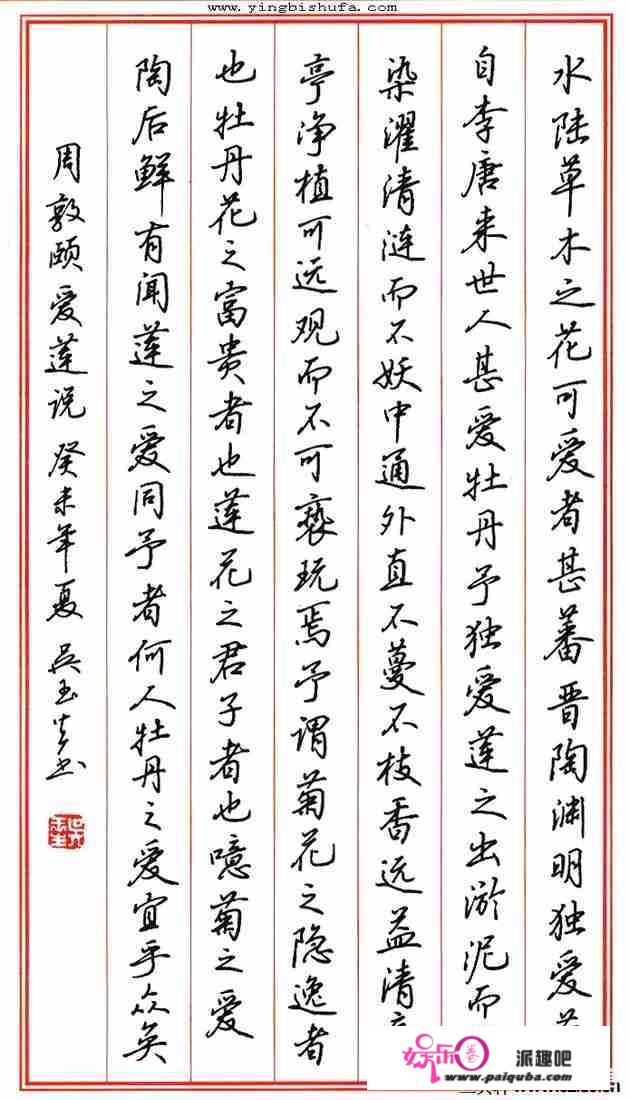 www.yingbishufa.com
水陆草木之花可爱者甚蕃晋陶渊明独爱
自李唐来世人甚爱牡丹予独爱莲之出淤泥而
染濯清涟而不妖中通外直不蔓不枝香远益清
亭净植可远观而不可亵玩焉予谓菊花之隐逸者
也牡丹花之富贵者也莲花之君子者也噫菊之爱
陶后鲜有闻莲之爱同予者何人牡丹之爱宜乎众矣
周敦颐爱莲说 癸未年夏 吴玉生书
娱乐卷 派趣吧
www.paiquba.com